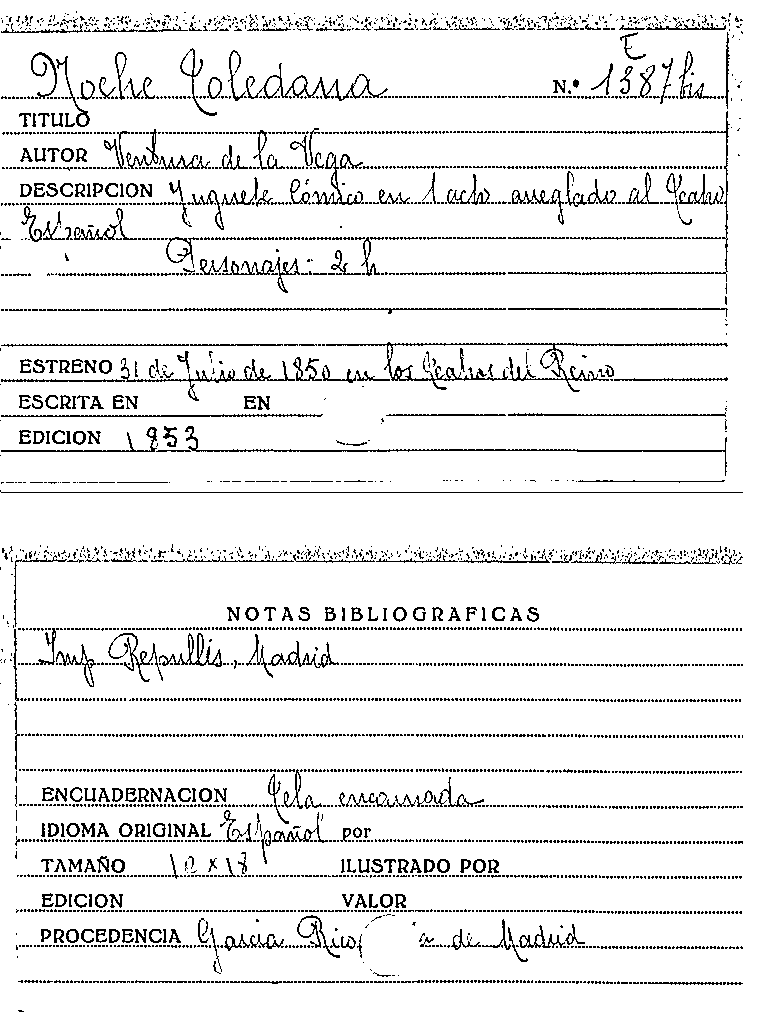 E
Noche Toledana N.º 1387 bis
TITULO
AUTOR Ventura de la Vega
DESCRIPCION Juguete Cómico en 1 acto arreglado al Teatro
Español
Personajes: 2 h
ESTRENO 31 de Julio de 1850 en los Teatros del Reino
ESCRITA EN EN
EDICION 1853
NOTAS BIBLIOGRAFICAS
Imp Repullés, Madrid
ENCUADERNACION Tela encarnada
IDIOMA ORIGINAL Español por
TAMAÑO 12 x 18 ILUSTRADO POR
EDICION VALOR
PROCEDENCIA Garcia Rico, de Madrid